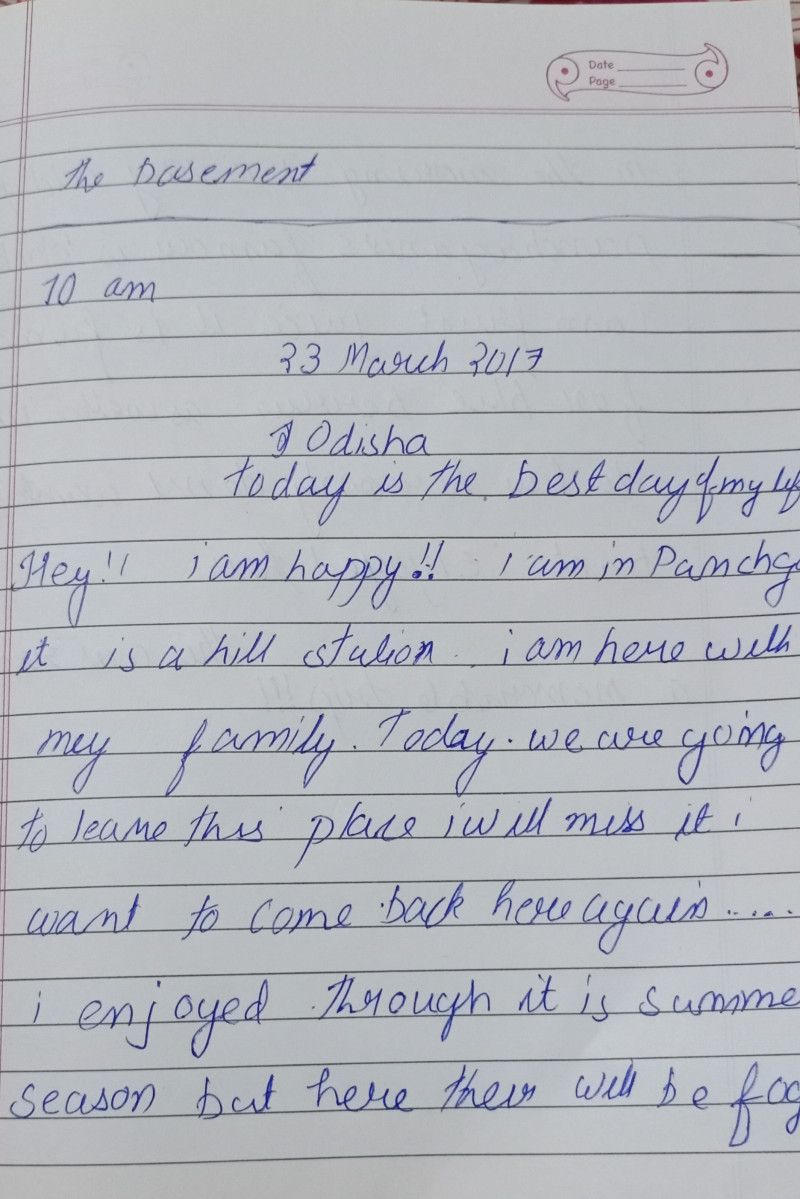 Date
Page
The basement
10 am
23 March 2017
Odisha
Today is the best day of my lif
Hey!! i am happy!! i am in Panchg
it is a hill station. i am here with
my family. Today. we are going
to leave this place i will miss it i
want to come back here again.....
i enjoyed through it is summe
season but here their will be fog